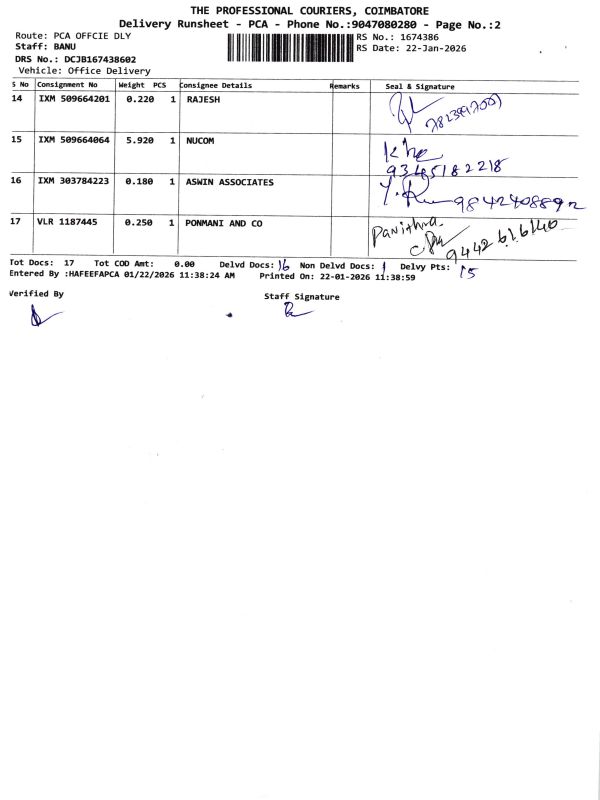 THE PROFESSIONAL COURIERS, COIMBATORE
Delivery Runsheet - PCA - Phone No.:9047080280 - Page No.:2
Route: PCA OFFCIE DLY
RS No.: 1674386
Staff: BANU
RS Date: 22-Jan-2026
DRS No.: DCJB167438602
Vehicle: Office Delivery
S No Consignment No Weight PCS Consignee Details Remarks Seal & Signature
14 IXM 509664201 0.220 1 RAJESH
15 IXM 509664064 5.920 1 NUCOM
9345182218
16 IXM 303784223 0.180 1 ASWIN ASSOCIATES
9842408892
17 VLR 1187445 0.250 1 PONMANI AND CO
Pavithra.
9442616140
Tot Docs: 17 Tot COD Amt: 0.00 Delvd Docs: 16 Non Delvd Docs: 1 Delvy Pts: 15
Entered By :HAFEEFAPCA 01/22/2026 11:38:24 AM Printed On: 22-01-2026 11:38:59
Verified By
Staff Signature